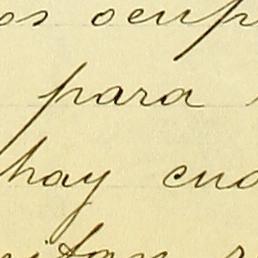 os ocup
para
hay cua